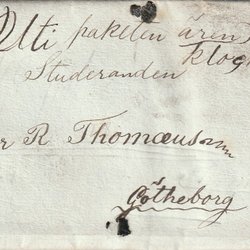 Uti paketen ären
klo
Studeranden
r R Thomæuson
Götheborg